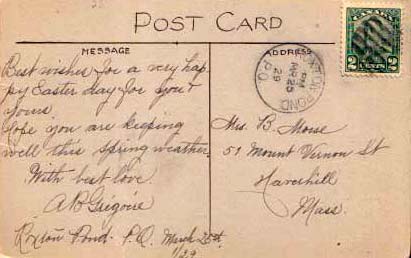 POST CARD
MESSAGE
Best wishes for a very hap
py Easter day for you &
yours
Hope you are keeping
well this spring weather.
With best love.
A B Gregoire
Roxton Pond. P.Q. March 25th
1/29
ADDRESS
ROXTON POND
PM
25
29
P.Q.
2 CENTS 2
Mrs. B. Morse
51 Mount Vernon St
Haverhill
Mass.